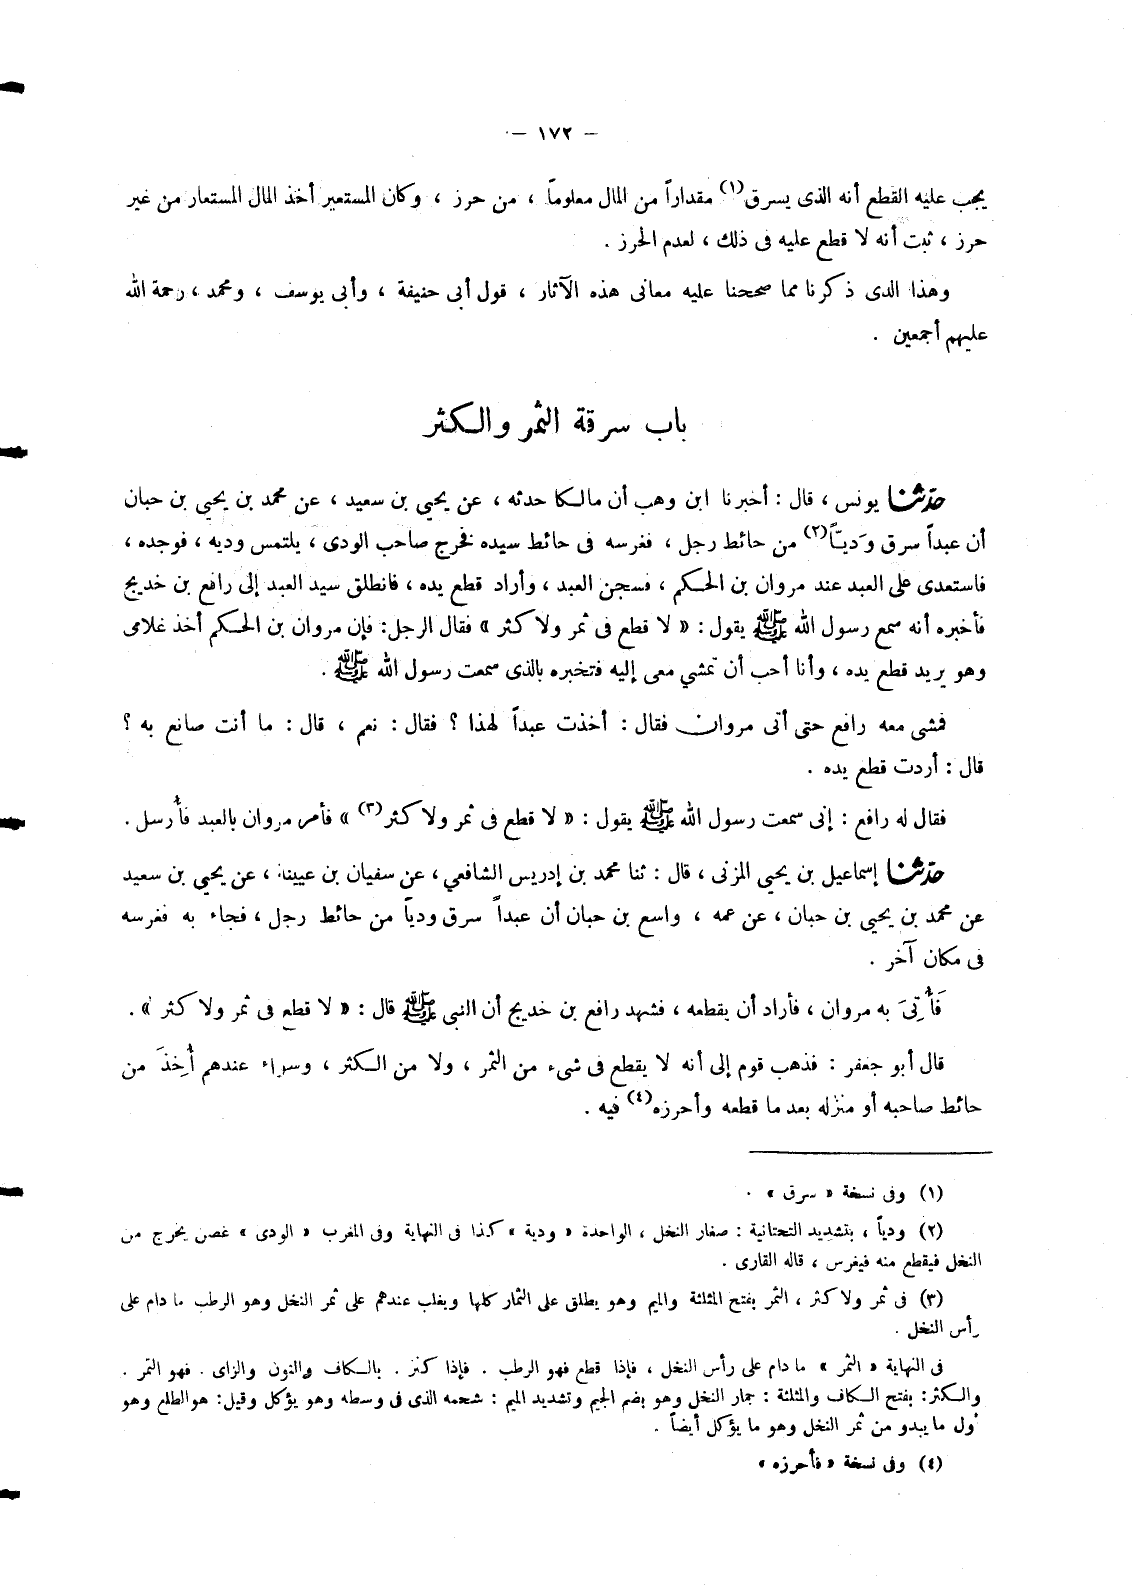 – ١٧٢ –
يجب عليه القطع أنه الذى يسرق(١) مقداراً من المال معلوماً ، من حرز ، وكان المستعير أخذ المال المستعار من غير
حرز ، ثبت أنه لا قطع عليه فى ذلك ، لعدم الحرز .
وهذا الدى ذكرنا مما صححنا عليه معانى هذه الآثار ، قول أبى حنيفة ، وأبى يوسف ، ومحمد ، رحمة الله
عليهم أجمعين .
باب سرقة الثمر والكثر
حدّثنا يونس ، قال : أخبرنا ابن وهب أن مالكا حدثه ، عن يحيي بن سعيد ، عن محمد بن يحيي بن حبان
أن عبداً سرق وَديـّاً(٢) من حائط رجل ، فغرسه فى حائط سيده فخرج صاحب الودى ، يلتمس وديه ، فوجده ،
فاستعدى على العبد عند مروان بن الحكم ، فسجن العبد ، وأراد قطع يده ، فانطلق سيد العبد إلى رافع بن خديج
فأخبره أنه سمع رسول الله ﷺ يقول : « لا قطع فى ثمر ولا كثر » فقال الرجل: فإن مروان بن الحكم أخذ غلامى
وهو يريد قطع يده ، وأنا أحب أن تمشي معى إليه فتخبره بالذى سمعت رسول الله ﷺ .
فمشى معه رافع حتى أتى مروان فقال : أخذت عبداً لهذا ؟ فقال : نعم ، قال : ما أنت صانع به ؟
قال : أردت قطع يده .
فقال له رافع : إنى سمعت رسول الله ﷺ يقول : « لا قطع فى ثمر ولا كثر(٣) » فأمر مروان بالعبد فأُرسل .
حدّثنا إسماعيل بن يحيي المزنى ، قال : ثنا محمد بن إدريس الشافعي ، عن سفيان بن عيينة ، عن يحيي بن سعيد
عن محمد بن يحيي بن حبان ، عن عمه ، واسع بن حبان أن عبداً سرق ودياً من حائط رجل ، فجاء به فغرسه
فى مكان آخر .
فَأُتِىَ به مروان ، فأراد أن يقطعه ، فشهد رافع بن خديج أن النبى ﷺ قال : « لا قطع فى ثمر ولا كثر » .
قال أبو جعفر : فذهب قوم إلى أنه لا يقطع فى شىء من الثمر ، ولا من الكثر ، وسواء عندهم أُخِذَ من
حائط صاحبه أو منزله بعد ما قطعه وأحرزه(٤) فيه .
(١) وفى نسخة « سرق » .
(٢) ودياً ، بتشديد التحتانية : صغار النخل ، الواحدة « ودية » كذا فى النهاية وفى المغرب « الودى » غصن يخرج من
النخل فيقطع منه فيغرس ، قاله القارى .
(٣) فى ثمر ولا كثر ، الثمر بفتح المثلثة والميم وهو يطلق على الثمار كلها ويغلب عندهم على ثمر النخل وهو الرطب ما دام على
رأس النخل .
فى النهاية « الثمر » ما دام على رأس النخل ، فإذا قطع فهو الرطب . فإذا كنز . بالكاف والنون والزاى . فهو التمر .
والكثر: بفتح الكاف والمثلثة : جمار النخل وهو بضم الجيم وتشديد الميم : شحمه الذى فى وسطه وهو يؤكل وقيل: هو الطلع وهو
أول ما يبدو من ثمر النخل وهو ما يؤكل أيضاً .
(٤) وفى نسخة « فأحرزه »